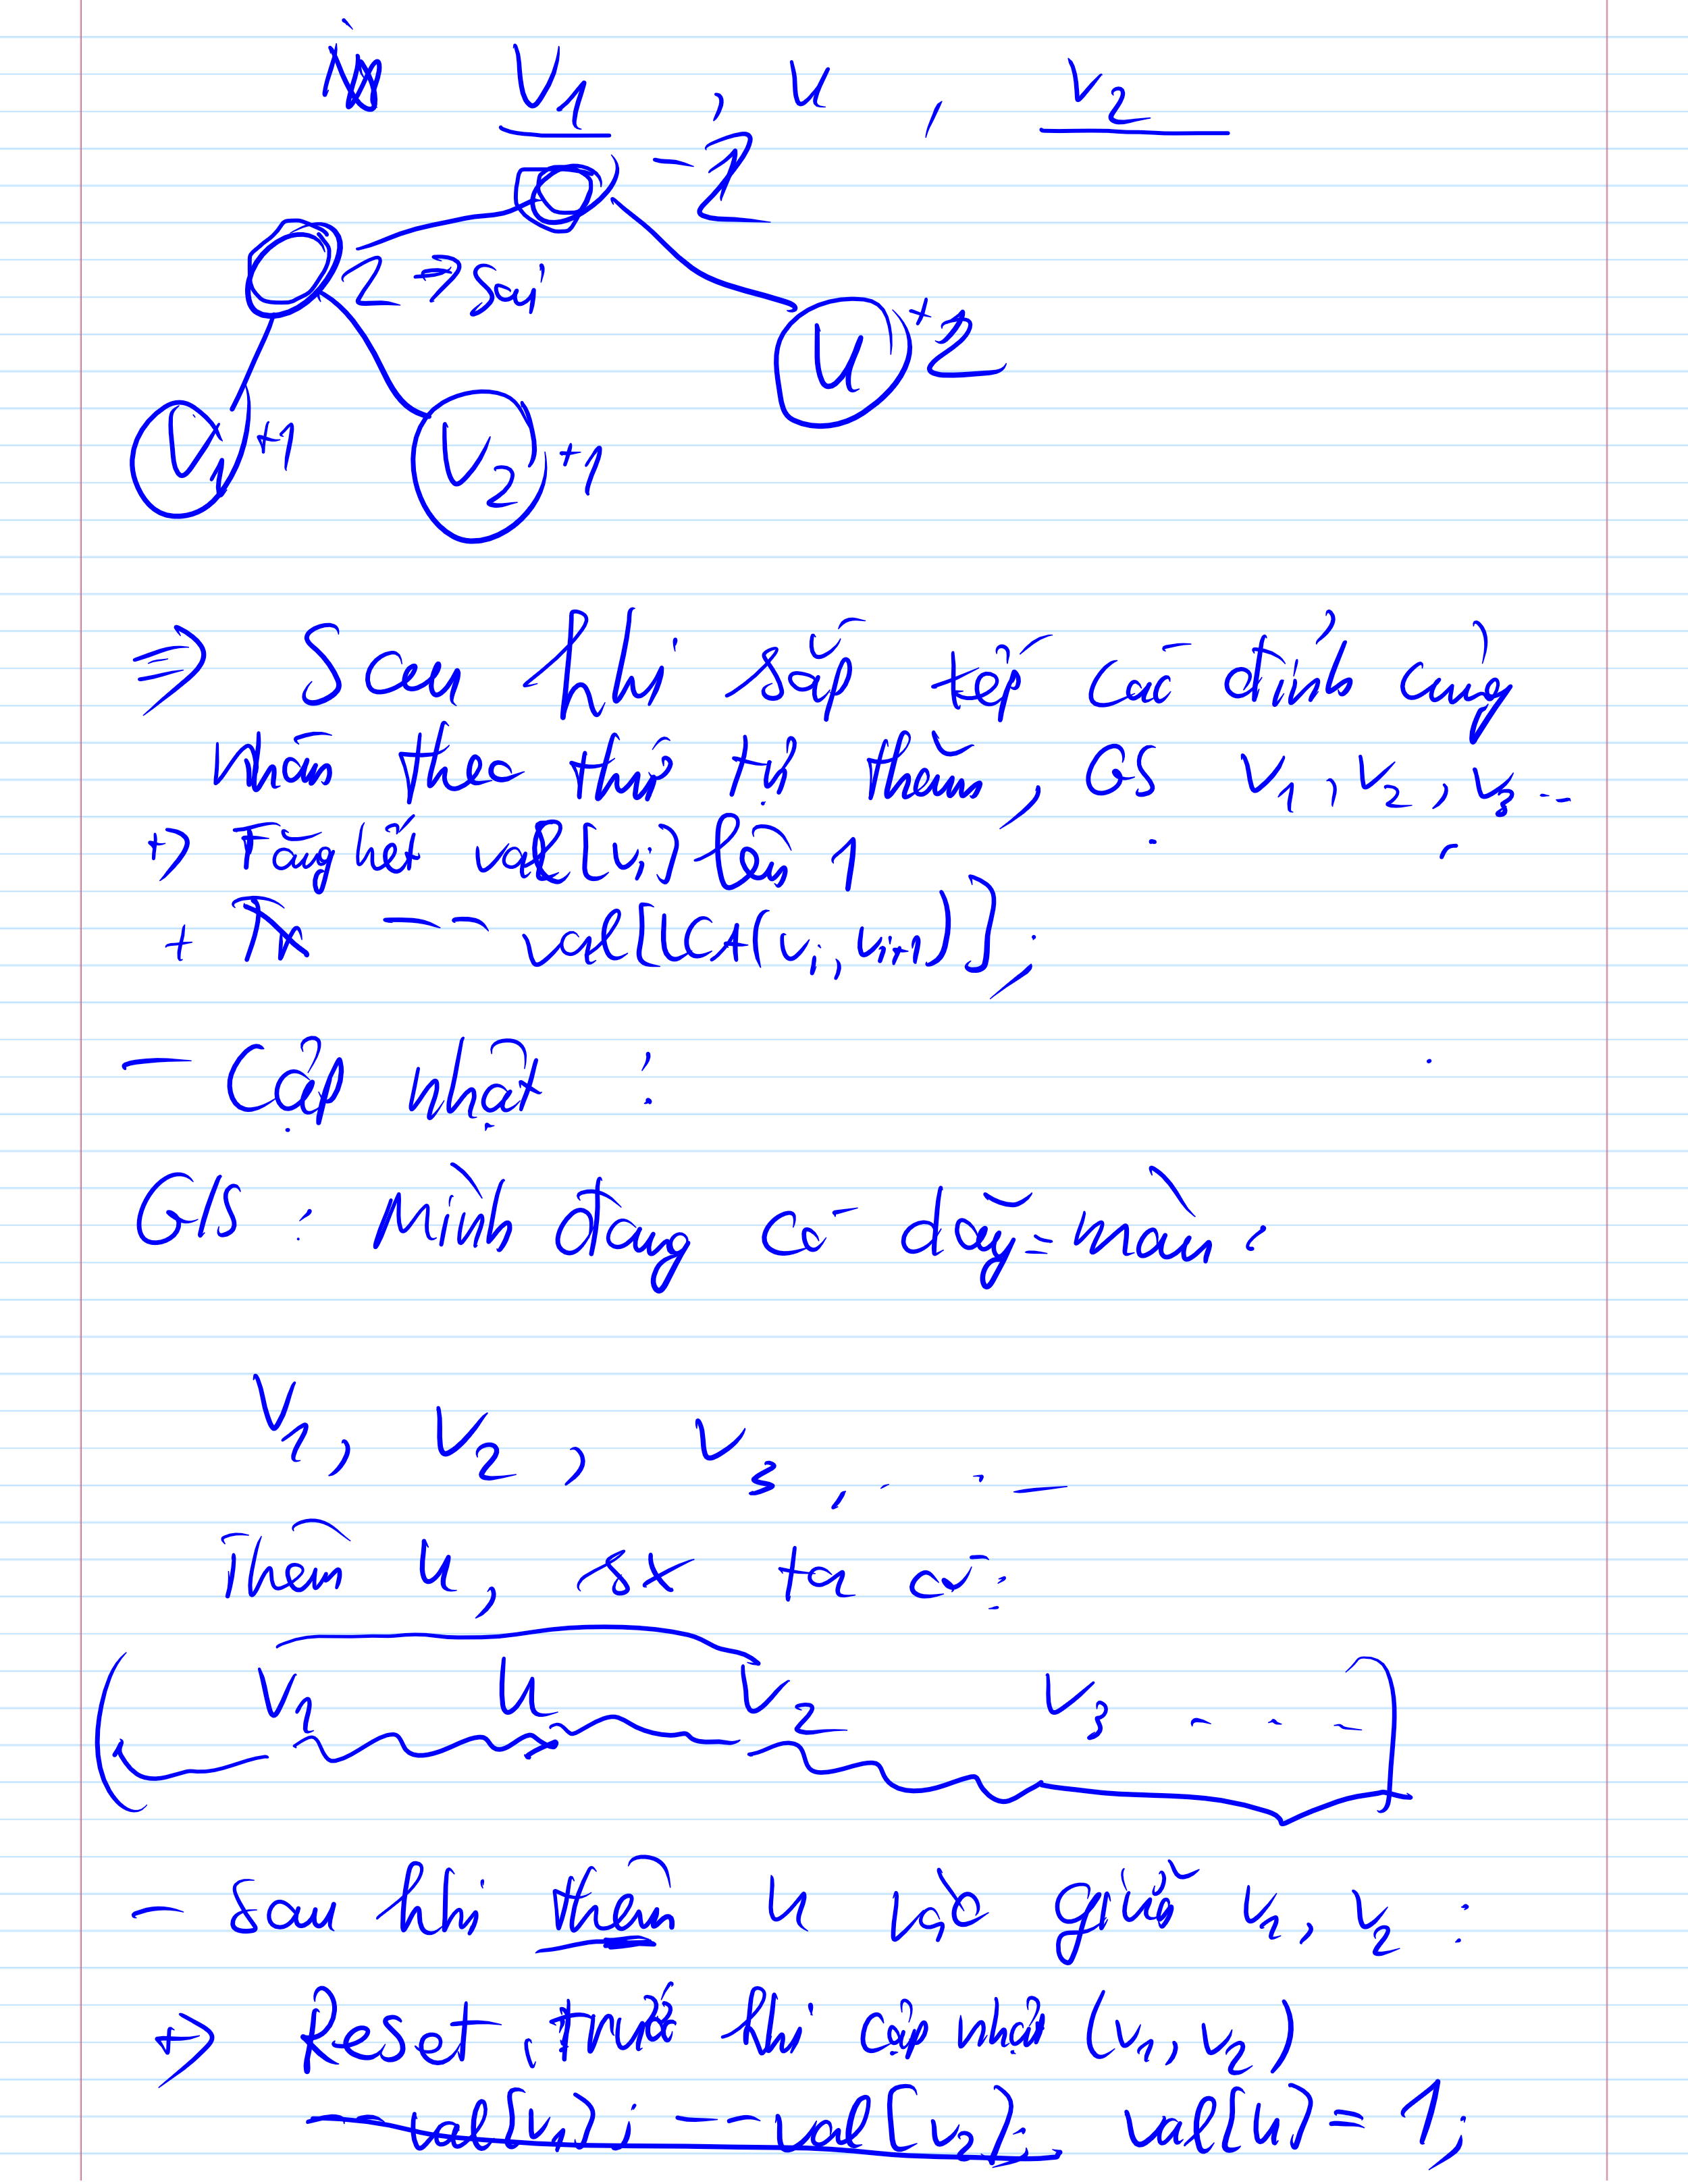 V1 , u , v2
- 2
2 => sai
u +2
V1 +1
V2 +1
=> Sau khi sắp xếp các đỉnh cùng
nhóm theo thứ tự thăm, GS v1, v2, v3...
+> Tăng hết val[vi] lên 1
+ -- val[LCA(vi, vi+1)];
- Cập nhật :
G/S : Mình đang có dãy màu :
V1, V2, V3, ...
Thêm u, sx ta có:
V1 u V2 V3 - - -
- Sau khi thêm u vào giữa v1, v2 :
+> Reset trước khi cập nhật (v1, v2)
-- val[v1]; -- val[v2]; val[u] = 1;